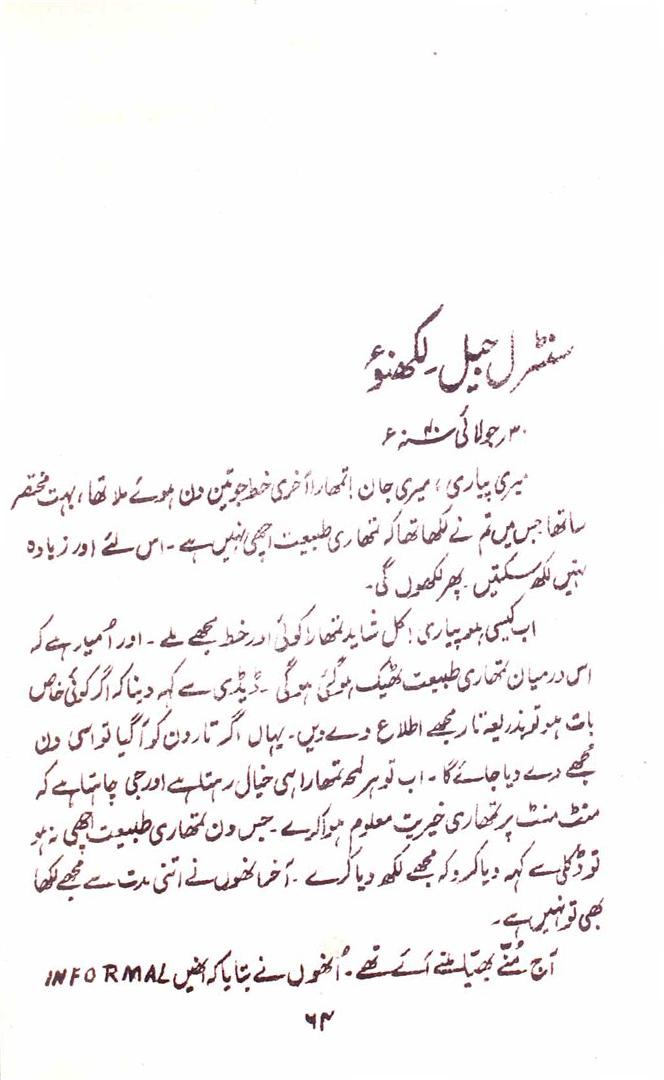 سنٹرل جیل۔ لکھنؤ
۳۰؍جولائی ۴۰سنہ ء
میری پیاری، میری جان! تمھارا آخری خط جو تین دن ہوئے ملا تھا، بہت مختصر
ساتھا جس میں تم نے لکھا تھا کہ تمھاری طبیعت اچھی نہیں ہے۔ اس لئے اور زیادہ
نہیں لکھ سکتیں۔ پھر لکھوں گی۔
اب کیسی ہو پیاری! کل شاید تمھارا کوئی اور خط مجھے ملے۔ اور اُمید ہے کہ
اس درمیان تمھاری طبیعت ٹھیک ہو گئی ہو گی۔ ڈیڈی سے کہہ دینا کہ اگر کوئی خاص
بات ہو تو بذریعہ تار مجھے اطلاع دے دیں۔ یہاں اگر تار دن کو آ گیا تو اسی دن
مجھے دے دیا جائے گا۔ اب تو ہر لمحہ تمھارا ہی خیال رہتا ہے اور جی چاہتا ہے کہ
منٹ منٹ پر تمھاری خیریت معلوم ہوا کرے۔ جس دن تمھاری طبیعت اچھی نہ ہو
تو ڈکلی سے کہہ دیا کرو کہ مجھے لکھ دیا کرے۔ آخر انھوں نے اتنی مدت سے مجھے لکھا
بھی تو نہیں ہے۔
آج مُنّے بھیّا ملنے آئے تھے۔ اُنھوں نے بتایا کہ انھیں INFORMAL
۶۳